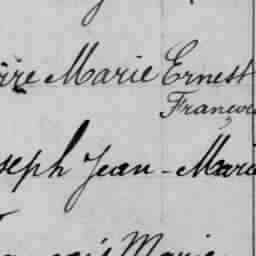 ire Marie Ernest
François
seph Jean-Marie
çois Marie